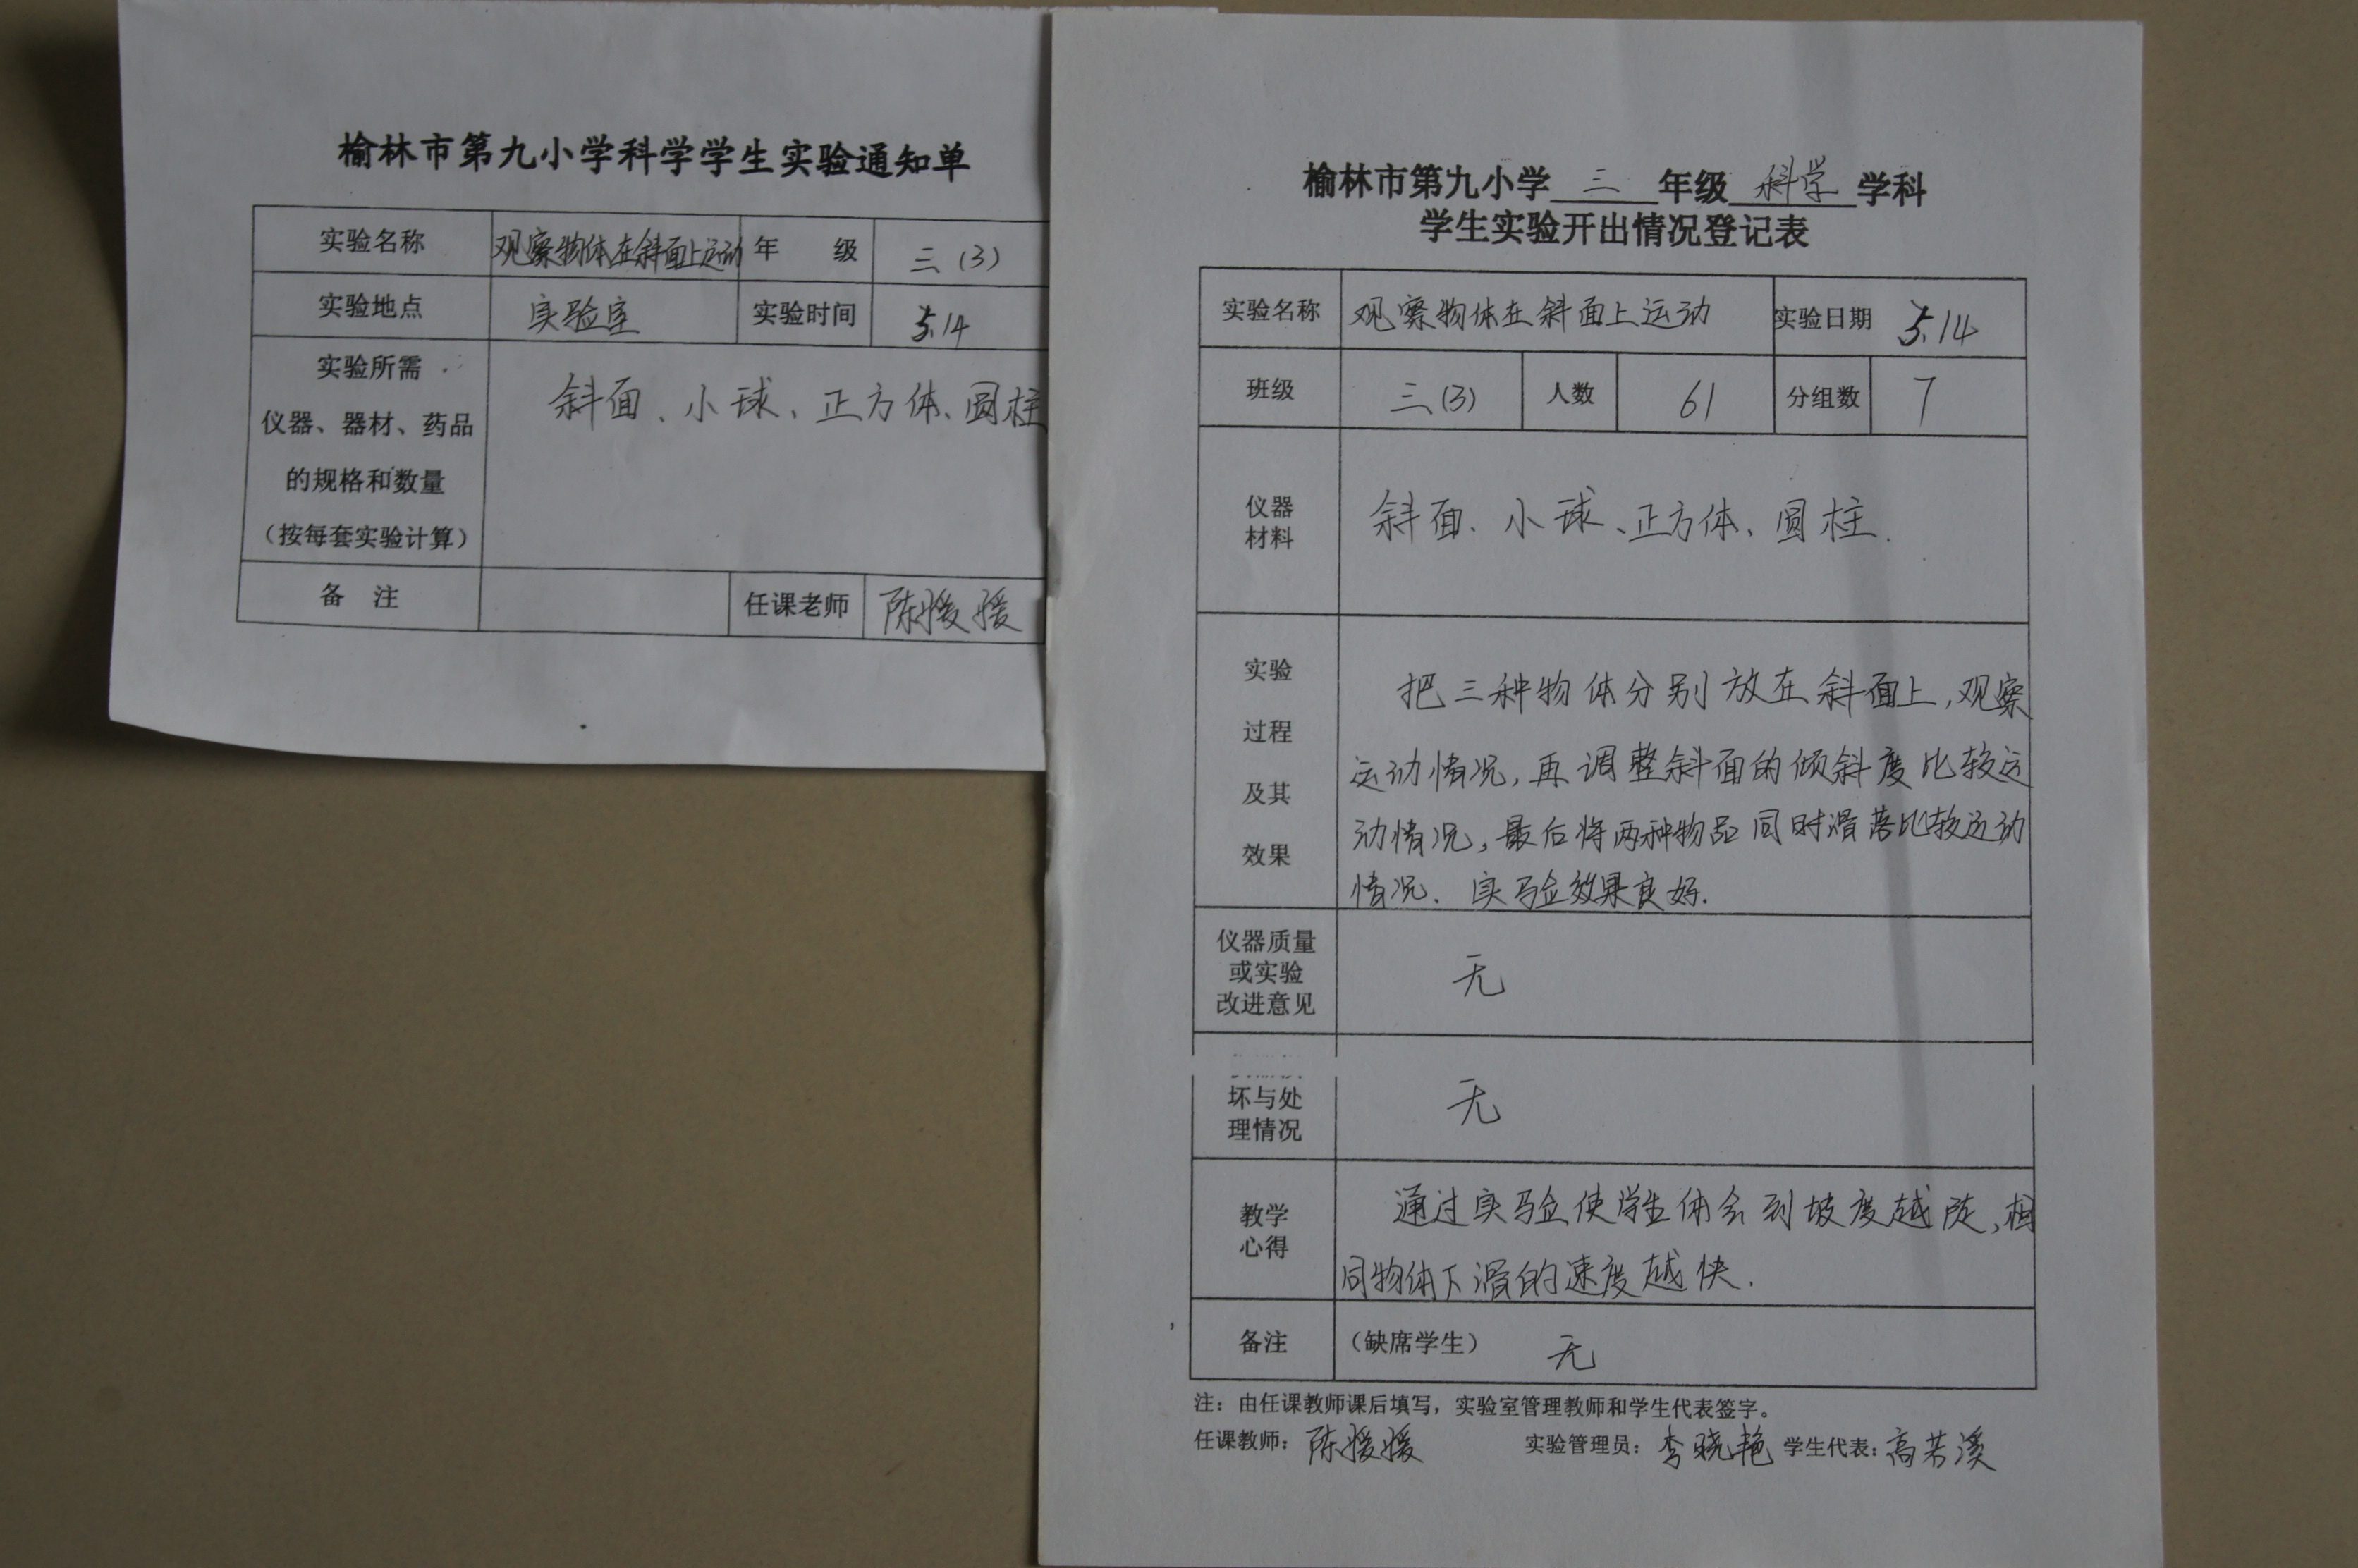 榆林市第九小学科学学生实验通知单
实验名称 观察物体在斜面上运动 年 级 三(3)
实验地点 实验室 实验时间 5.14
实验所需
仪器、器材、药品
的规格和数量
(按每套实验计算)
斜面、小球、正方体、圆柱
备 注 任课老师 陈媛媛
榆林市第九小学 三 年级 科学 学科
学生实验开出情况登记表
实验名称 观察物体在斜面上运动 实验日期 5.14
班级 三(3) 人数 61 分组数 7
仪器
材料
斜面、小球、正方体、圆柱.
实验
过程
及其
效果
把三种物体分别放在斜面上,观察
运动情况,再调整斜面的倾斜度比较运
动情况,最后将两种物品同时滑落比较运动
情况. 实验效果良好.
仪器质量
或实验
改进意见
无
坏与处
理情况
无
教学
心得
通过实验使学生体会到坡度越陡,相
同物体下滑的速度越快.
备注 (缺席学生) 无
注:由任课教师课后填写,实验室管理教师和学生代表签字。
任课教师: 陈媛媛 实验管理员: 李晓艳 学生代表: 高若溪